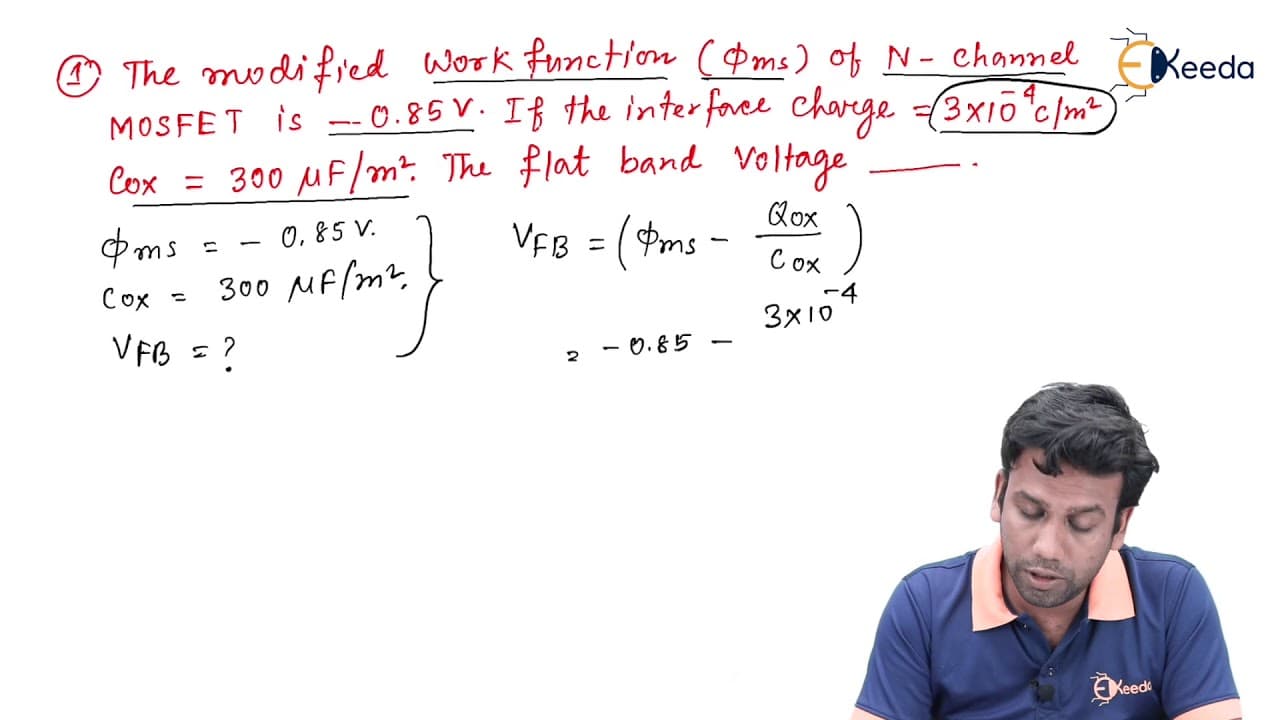 ① The modified work function (ϕms) of N-channel
MOSFET is -0.85 V. If the interface charge = 3×10⁻⁴ C/m²
Cox = 300 μF/m². The flat band voltage ____.
ϕms = - 0.85 V.
Cox = 300 μF/m².
VFB = ?
VFB = (ϕms - Qox/Cox)
= -0.85 - 3×10⁻⁴
EKeeda
EKeeda